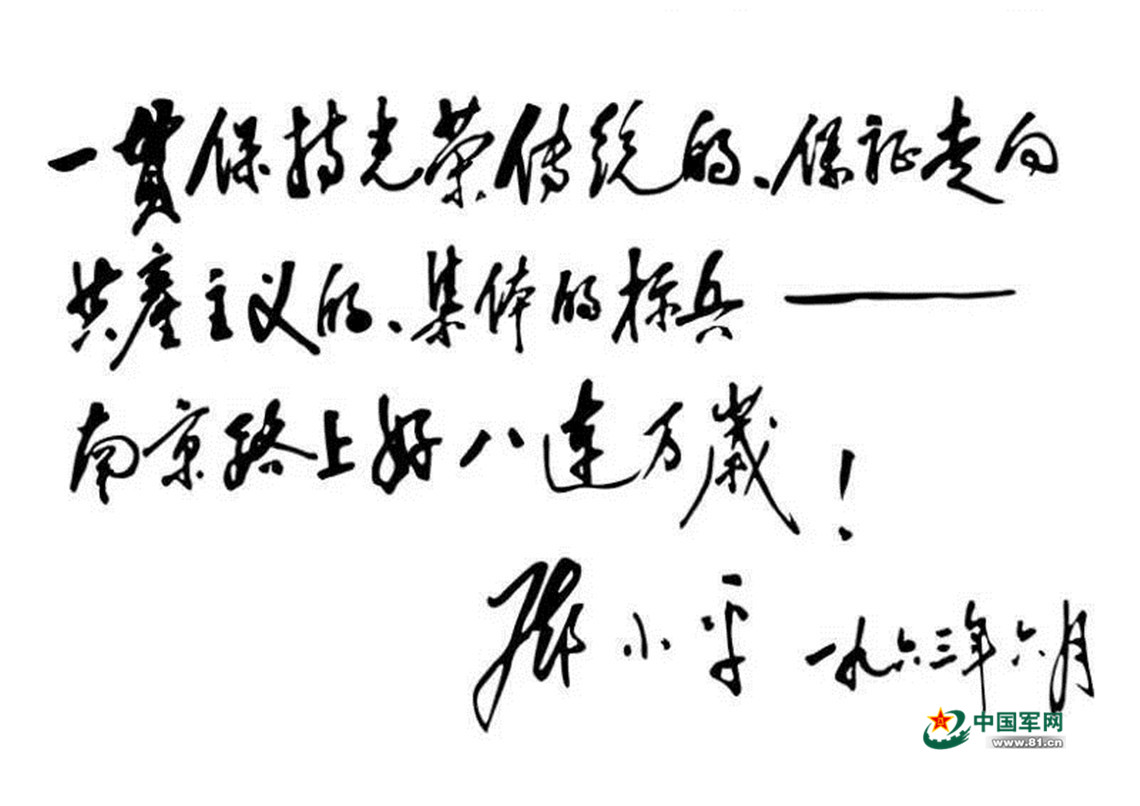 一貫保持光荣传统的、保证走向
共產主义的、集体的标兵——
南京路上好八连万歲！
邓小平 一九六三年六月
中国军网
www.81.cn